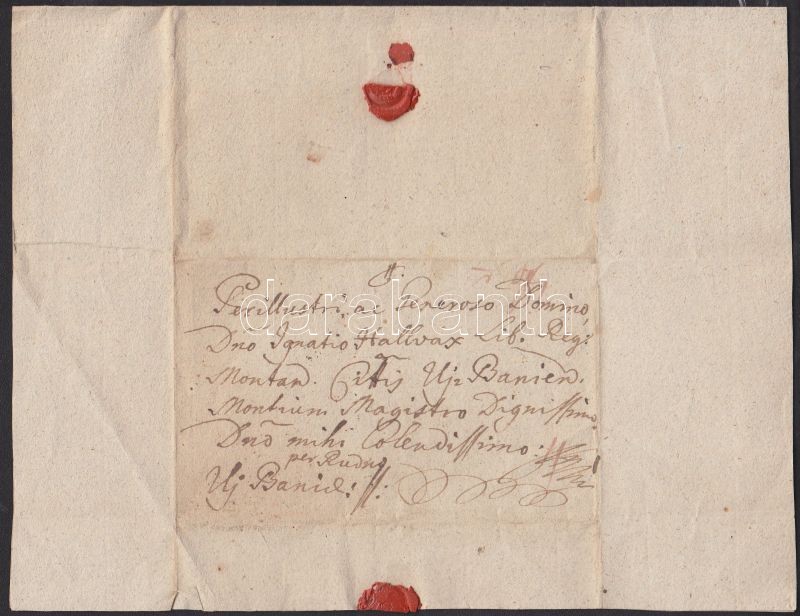 Perillustri, ac Generoso Domino,
Dno Ignatio Hallvax Lib. Reg:
Montan. Cittis Uj Banien.
Montium Magistro Dignissimo
Dno mihi Colendissimo:
per Rudno
Uj Baniæ:
darabanth